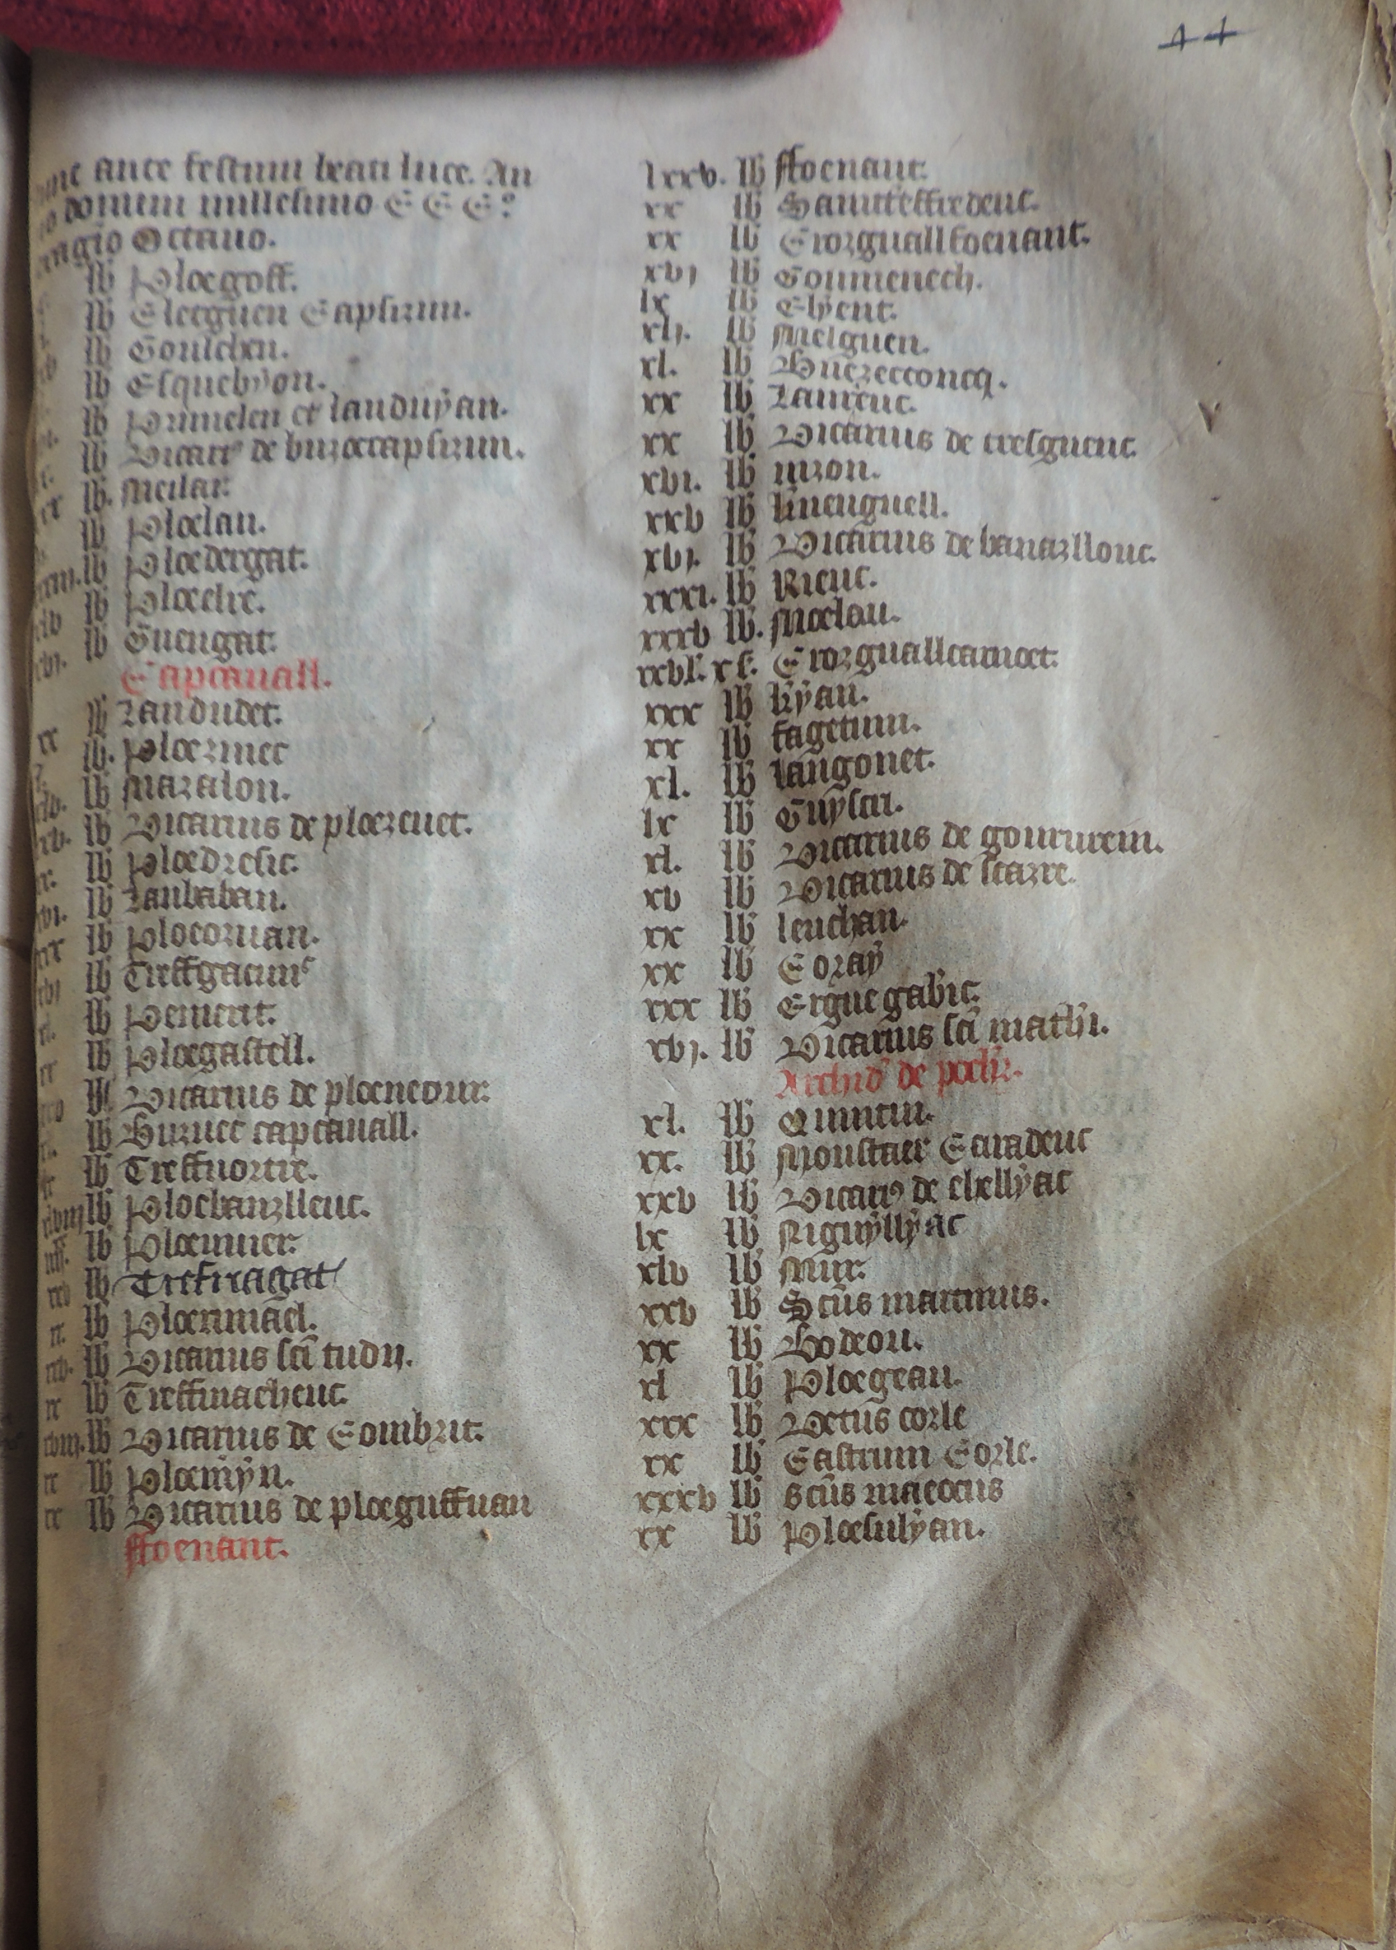 44
ante festum beati luce. An
domini millesimo CCC°
Octauo.
lb Ploegoff.
lb Cleeguen Capsizun.
lb Goulchen.
lb Esquebyon.
lb Primelen et landuyan.
lb Vicari9 de buzoccapsizun.
lb. Meilar.
lb Ploelan.
lb Ploedergat.
lb Ploeelre.
lb Guengat.
Capcauall.
lb Landudet.
lb. Ploezmec
lb Mazalon.
lb Vicarius de ploezeuet.
lb Ploedresic.
lb Lanbaban.
lb Ploeoruan.
lb Treffgacun
lb Penmert.
lb Ploegastell.
lb Vicarius de ploeneour.
lb Buzuec capcauall.
lb Treffuortre.
lb Ploebanzlleuc.
lb Ploemuer.
lb Trefriagat
lb Ploenmael.
lb Vicarius sci tudii.
lb Treffmacheuc.
lb Vicarius de Combrit.
lb Ploemyn.
lb Vicarius de ploeguffuan
ffoenant.
lxxv. lb ffoenant.
xx lb Sainteffredeuc.
xx lb Crozguallfoenant.
xvj lb Gouuenech.
lx lb Elyent.
xlj. lb Melguen.
xl. lb Buezecconcq.
xx lb Lanreuc.
xx lb Vicarius de tresguenc.
xvi. lb nizon.
xxv lb kneuguell.
xvj. lb Vicarius de banazllouc.
xxxi. lb Rieuc.
xxxv lb. Moelau.
Crozguallcamoet.
xxx lb kyan.
xx lb fagetum.
xl. lb langonet.
lx lb Guyscri.
xl. lb Vicarius de goururem.
xv lb Vicarius de scazre.
xx lb leuchan.
xx lb Coray
xxx lb Ergue gabic.
xvj. lb Vicarius sci mathi.
Archid de poehr.
xl. lb Quintin.
xx. lb Moustaer Caradeuc
xxv lb Vicari9 de chellyac
lx lb Niguyllyac
xlv lb Mur.
xxv lb Scus martinus.
xx lb Bodeou.
xl lb Ploegrau.
xxx lb Vetus corle
xx lb Castrum Corle.
xxxv lb scus maeocus
xx lb Ploesulyan.